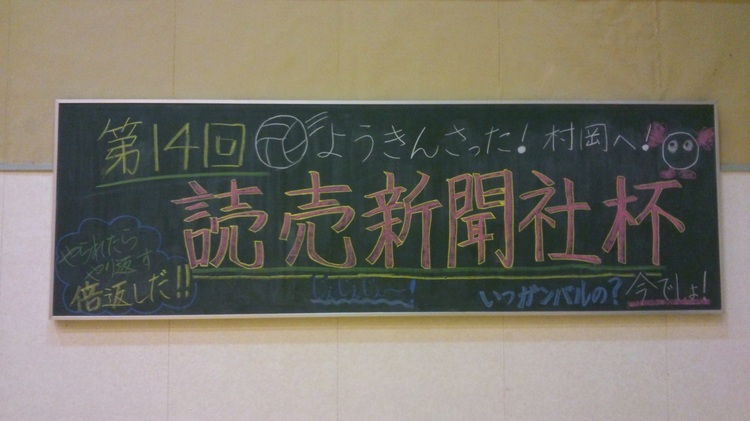 第14回
ようきんさった!村岡へ!
読売新聞社杯
やられたら
やり返す
倍返しだ!!
じぇじぇじぇ〜!
いつガンバルの?今でしょ!